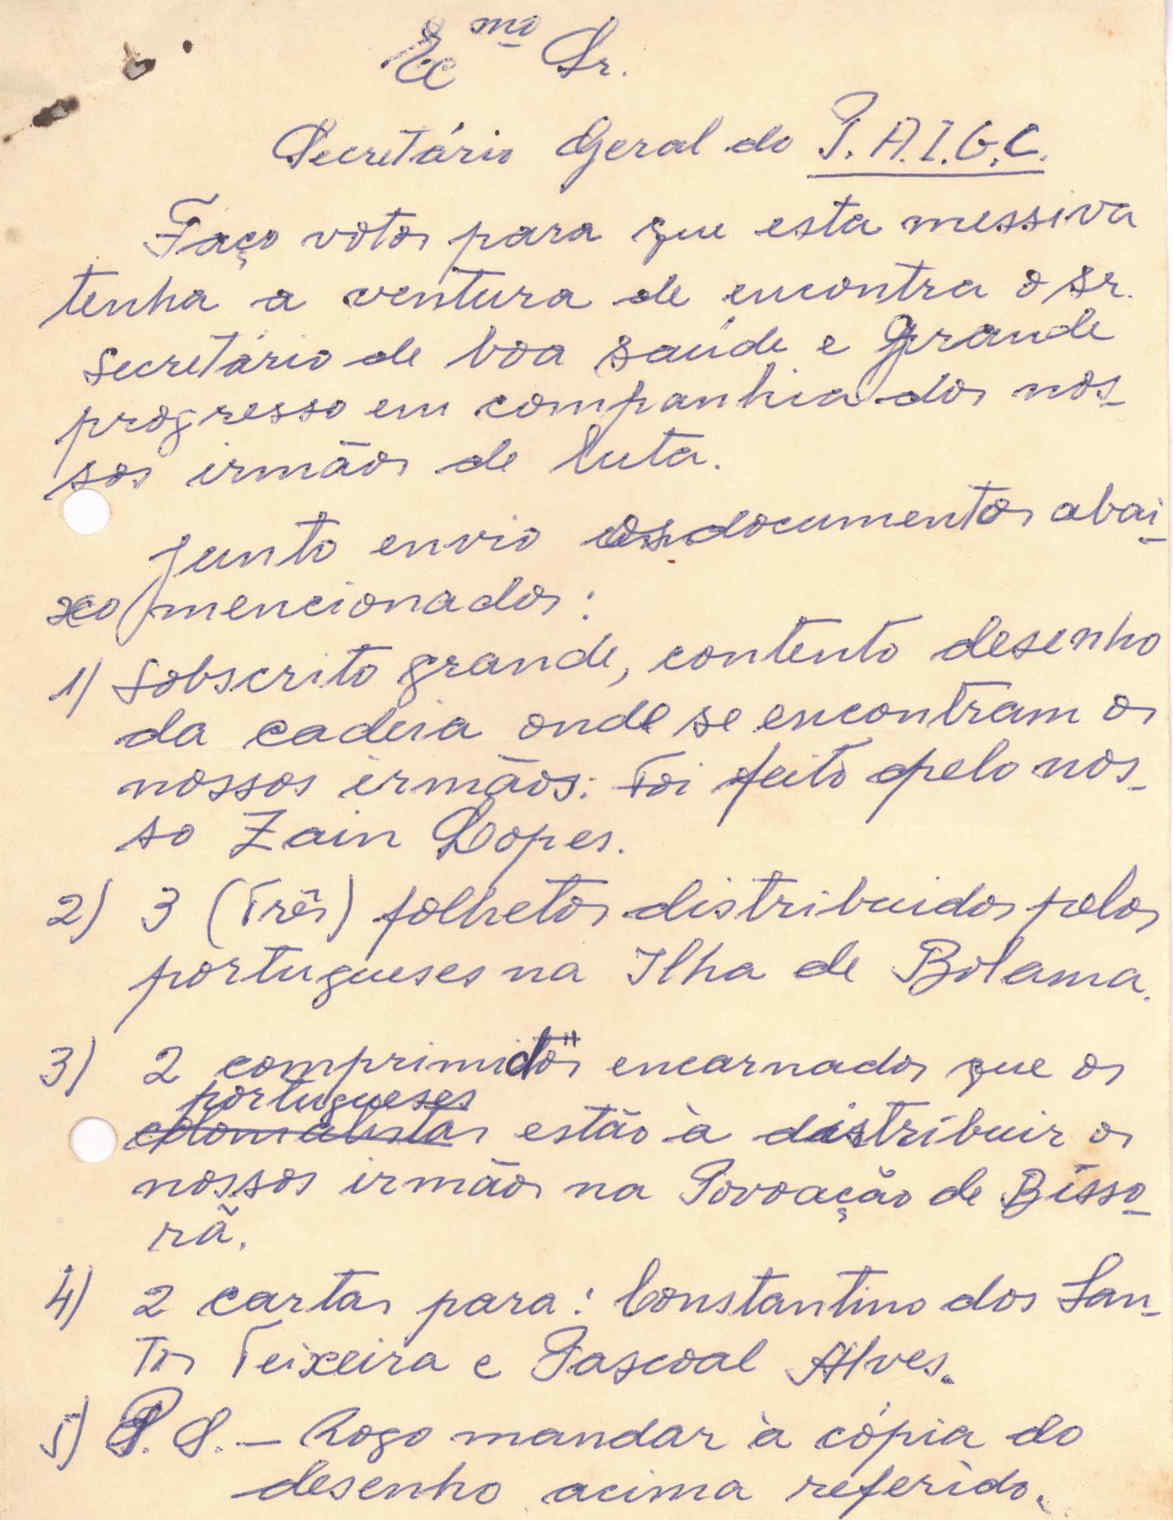 Ex mo Sr.
Secretário Geral do P.A.I.G.C.
Faço votos para que esta messiva
tenha a ventura de encontra o Sr.
Secretário de boa saúde e grande
progresso em companhia dos nos-
sos irmãos de luta.
Junto envio os documentos abai-
xo mencionados:
1) Sobscrito grande, contento desenho
da cadeia onde se encontram os
nossos irmãos: Foi feito pelo nos-
so Zain Lopes.
2) 3 (Três) folhetos distribuidos pelos
portugueses na Ilha de Bolama.
3) 2 comprimidos encarnados que os
portugueses
colonialistas estão à distribuir os
nossos irmãos na Povoação de Bisso-
rã.
4) 2 cartas para: Constantino dos San-
tos Teixeira e Pascoal Alves.
5) P. S. — Rogo mandar à cópia do
desenho acima referido.